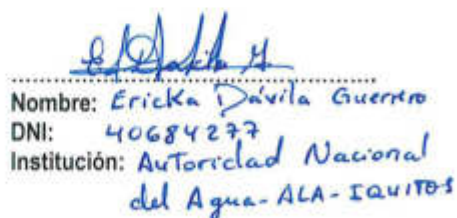 Nombre: Ericka Dávila Guerrero
DNI: 40684277
Institución: Autoridad Nacional
del Agua-ALA-IQUITOS